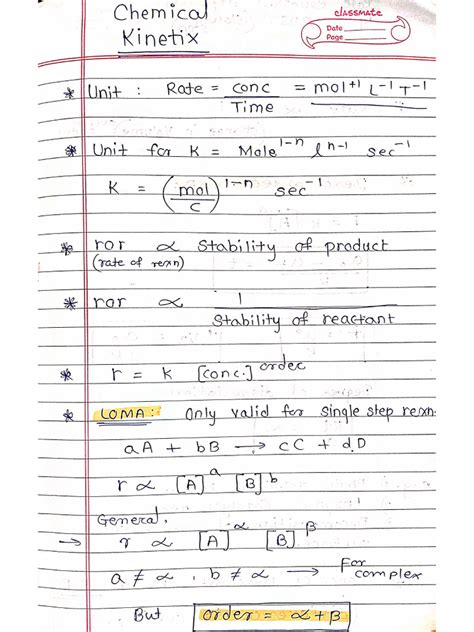 Chemical
Kinetix
classmate
Date
Page
* Unit : Rate = conc / Time = mol⁺¹ L⁻¹ T⁻¹
* Unit for K = Mole¹⁻ⁿ lⁿ⁻¹ sec⁻¹
K = (mol / L)¹⁻ⁿ sec⁻¹
* ror ∝ Stability of product
(rate of rexn)
* ror ∝ 1 / Stability of reactant
* r = k [conc.]ᵒʳᵈᵉʳ
* LOMA : Only valid for single step rexn.
aA + bB → cC + dD
r ∝ [A]ᵃ [B]ᵇ
General,
→ r ∝ [A]^α [B]^β
a ≠ α , b ≠ α → For complex
But order = α + β